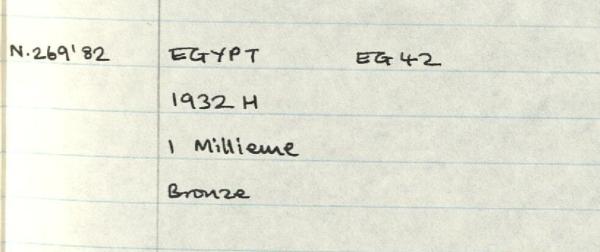 N.269'82 EGYPT EG 42
1932 H
1 Millieme
Bronze